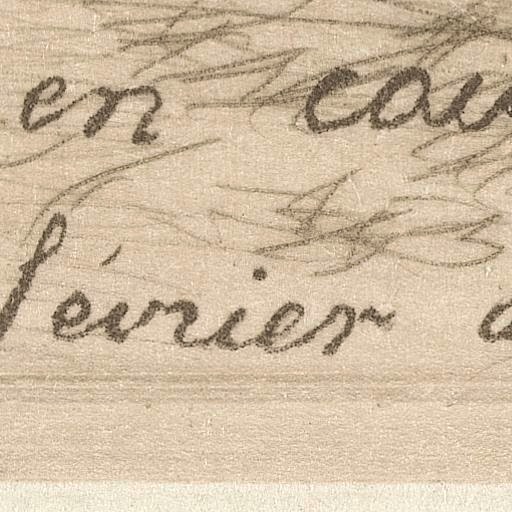 en cou
février